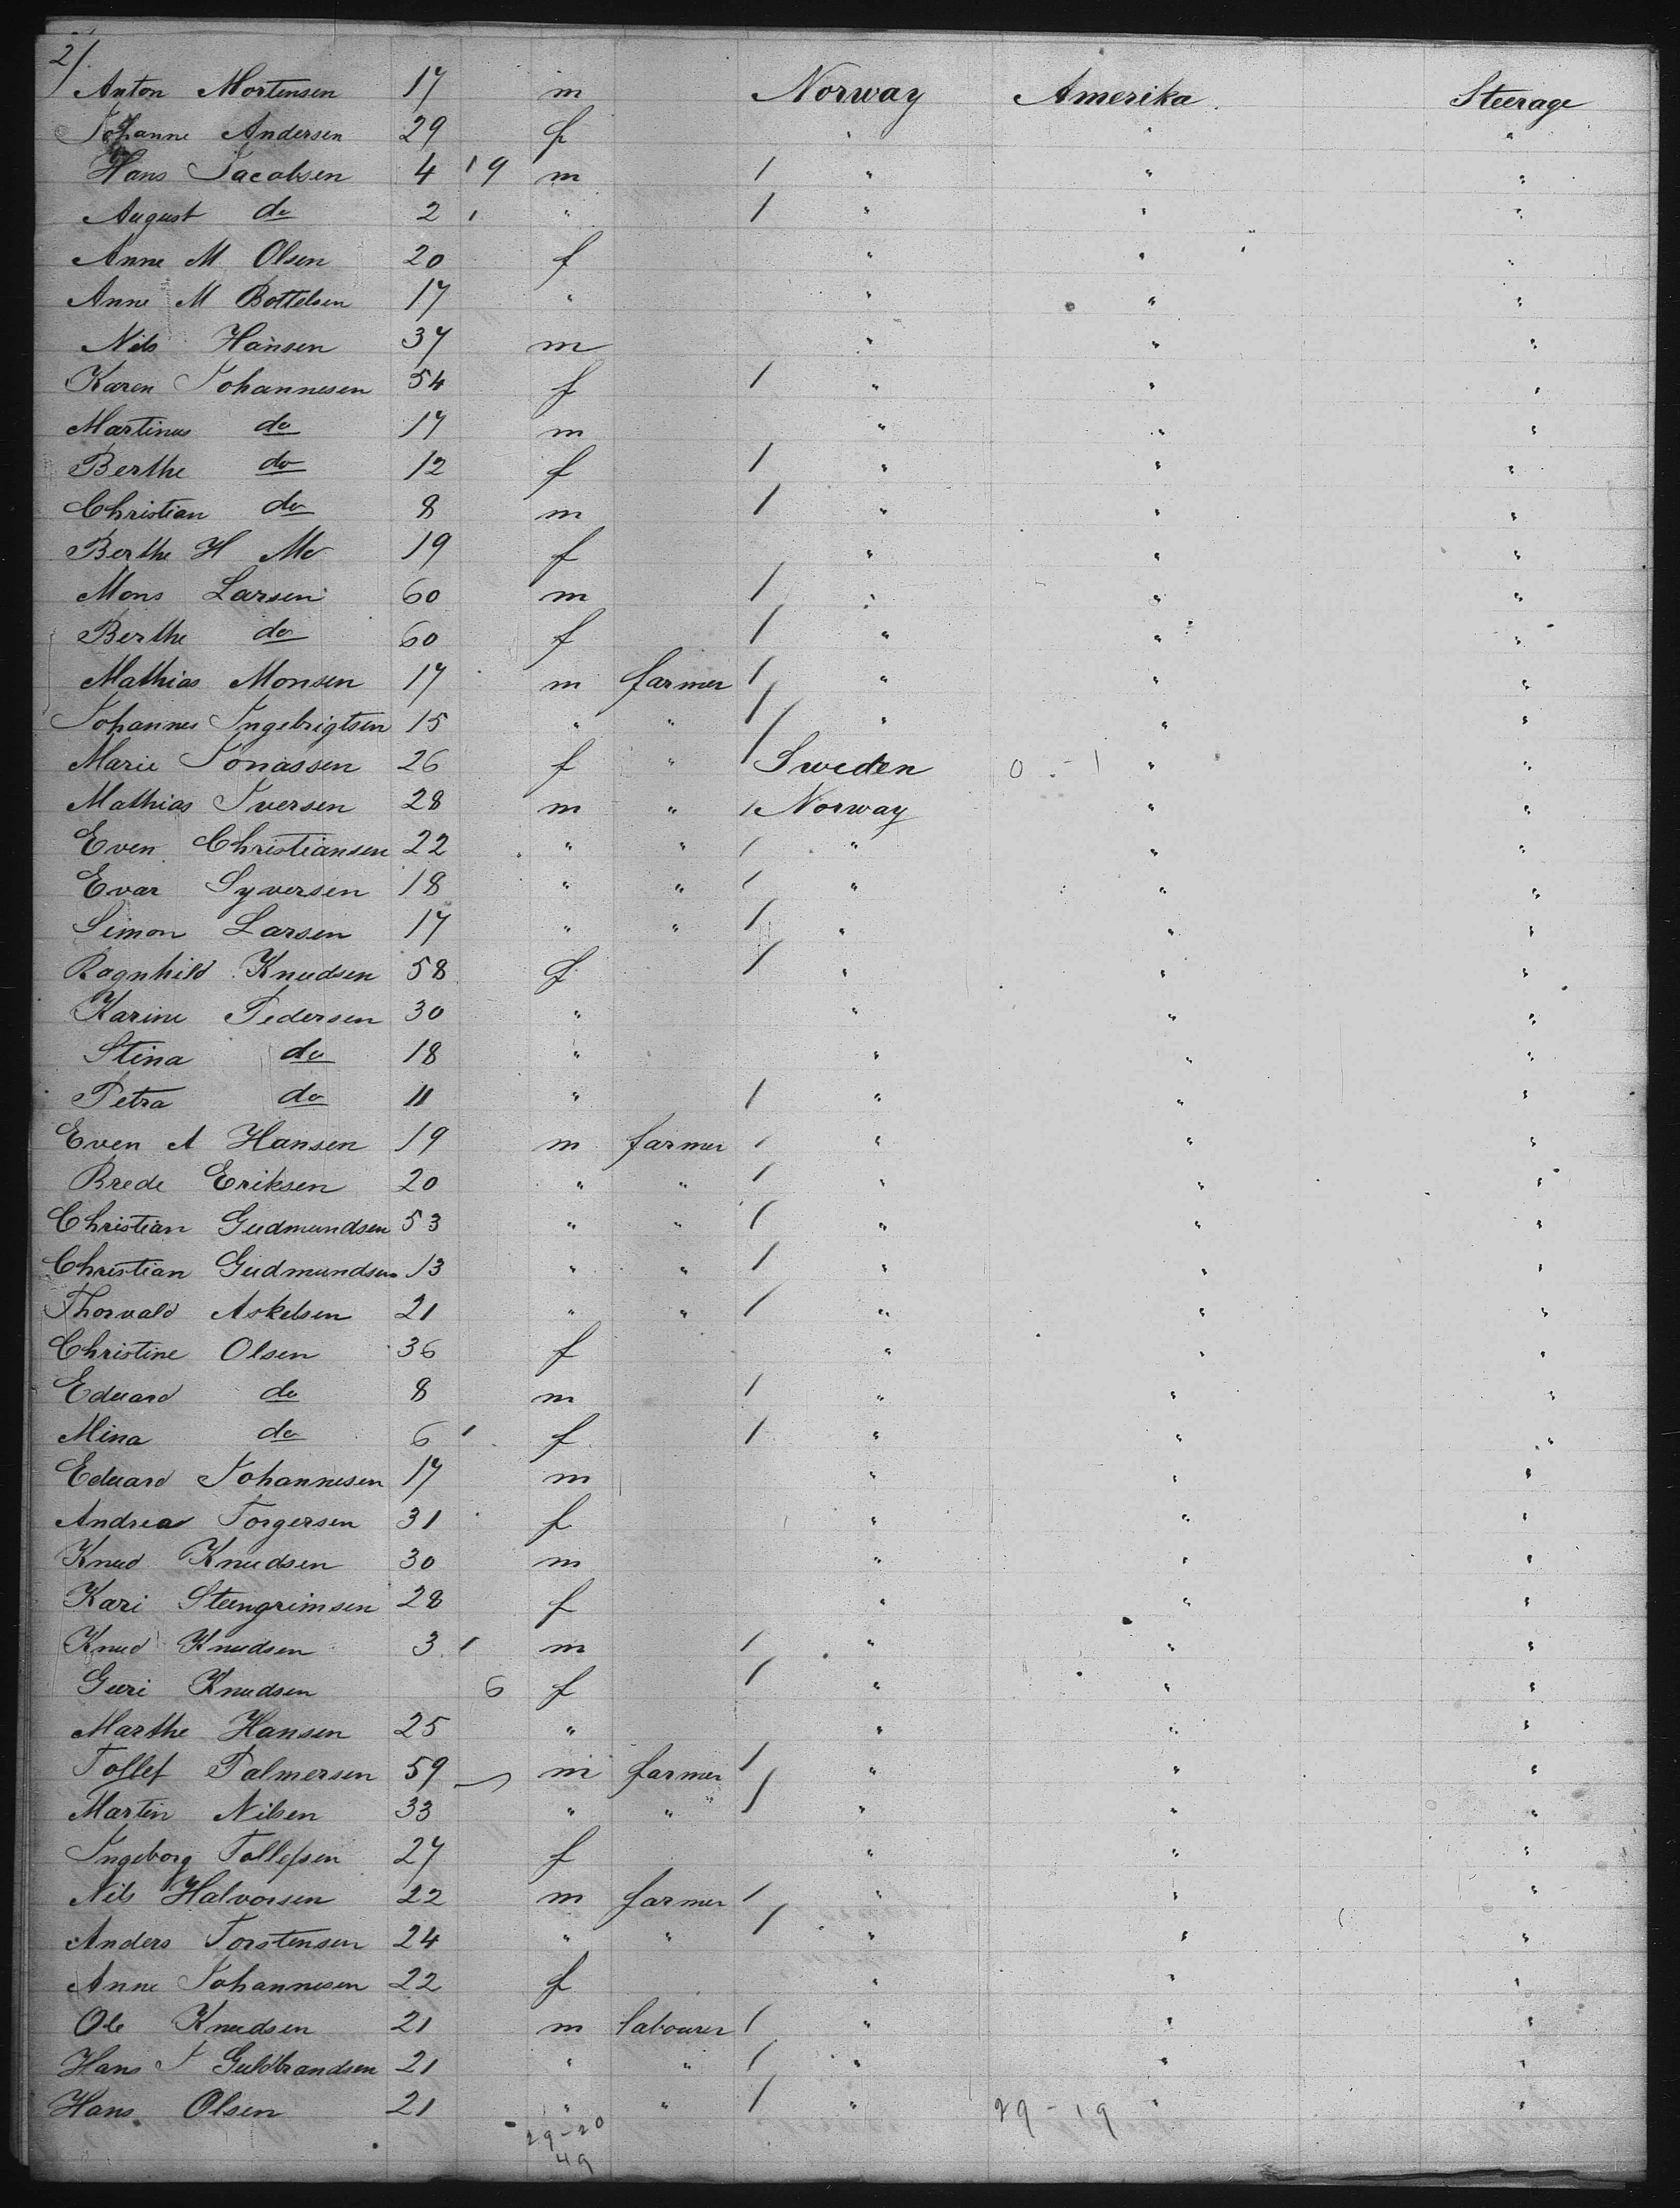 2/.
Anton Mortensen 17 m Norway Amerika. Steerage
Johanne Andersen 29 f " " "
Hans Jacobsen 4 1 9 m 1 " " "
August do 2 1 " 1 " " "
Anne M Olsen 20 f " " "
Anne M Bottelsen 17 " " " "
Nils Hansen 37 m " " "
Karen Johannesen 54 f 1 " " "
Martinus do 17 m " " "
Berthe do 12 f 1 " " "
Christian do 8 m 1 " " "
Berthe H Mo 19 f " " "
Mons Larsen 60 m 1 " " "
Berthe do 60 f 1 " " "
Mathias Monsen 17 m farmer 1 " " "
Johannes Ingebrigtsen 15 " " 1 " " "
Marie Jonassen 26 f " 1 Sweden 0 - 1 " "
Mathias Iversen 28 m " 1 Norway " "
Even Christiansen 22 " " 1 " " "
Evar Syversen 18 " " 1 " " "
Simon Larsen 17 " " 1 " " "
Ragnhild Knudsen 58 f 1 " " "
Karine Pedersen 30 " " " "
Stina do 18 " " " "
Petra do 11 " 1 " " "
Even A Hansen 19 m farmer 1 " " "
Brede Eriksen 20 " " 1 " " "
Christian Gudmundsen 53 " " 1 " " "
Christian Gudmundsen 13 " " 1 " " "
Thorvald Askelsen 21 " " 1 " " "
Christine Olsen 36 f " " "
Eduard do 8 m 1 " " "
Mina do 6 1 f 1 " " "
Eduard Johannesen 17 m " " "
Andrea Torgersen 31 f " " "
Knud Knudsen 30 m " " "
Kari Steengrimsen 28 f " " "
Knud Knudsen 3 1 m 1 " " "
Guri Knudsen 6 f 1 " " "
Marthe Hansen 25 " " " "
Tollef Palmersen 59 m farmer 1 " " "
Martin Nilsen 33 " " 1 " " "
Ingeborg Tollefsen 27 f " " "
Nils Halvorsen 22 m farmer 1 " " "
Anders Torstensen 24 " " 1 " " "
Anne Johannesen 22 f " " "
Ole Knudsen 21 m labourer 1 " " "
Hans J Guldbrandsen 21 " " 1 " " "
Hans Olsen 21 " " 1 " 29 - 19 " "
29 - 20
49